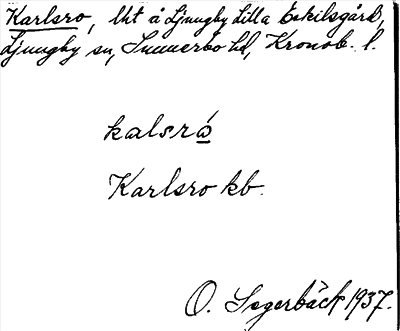 Karlsro, lht å Ljungby Lilla Eskilsgård,
Ljungby sn, Sunnerbo hd, Kronob. l.
kalsrọ́
Karlsro kb.
O. Segerbäck 1937.